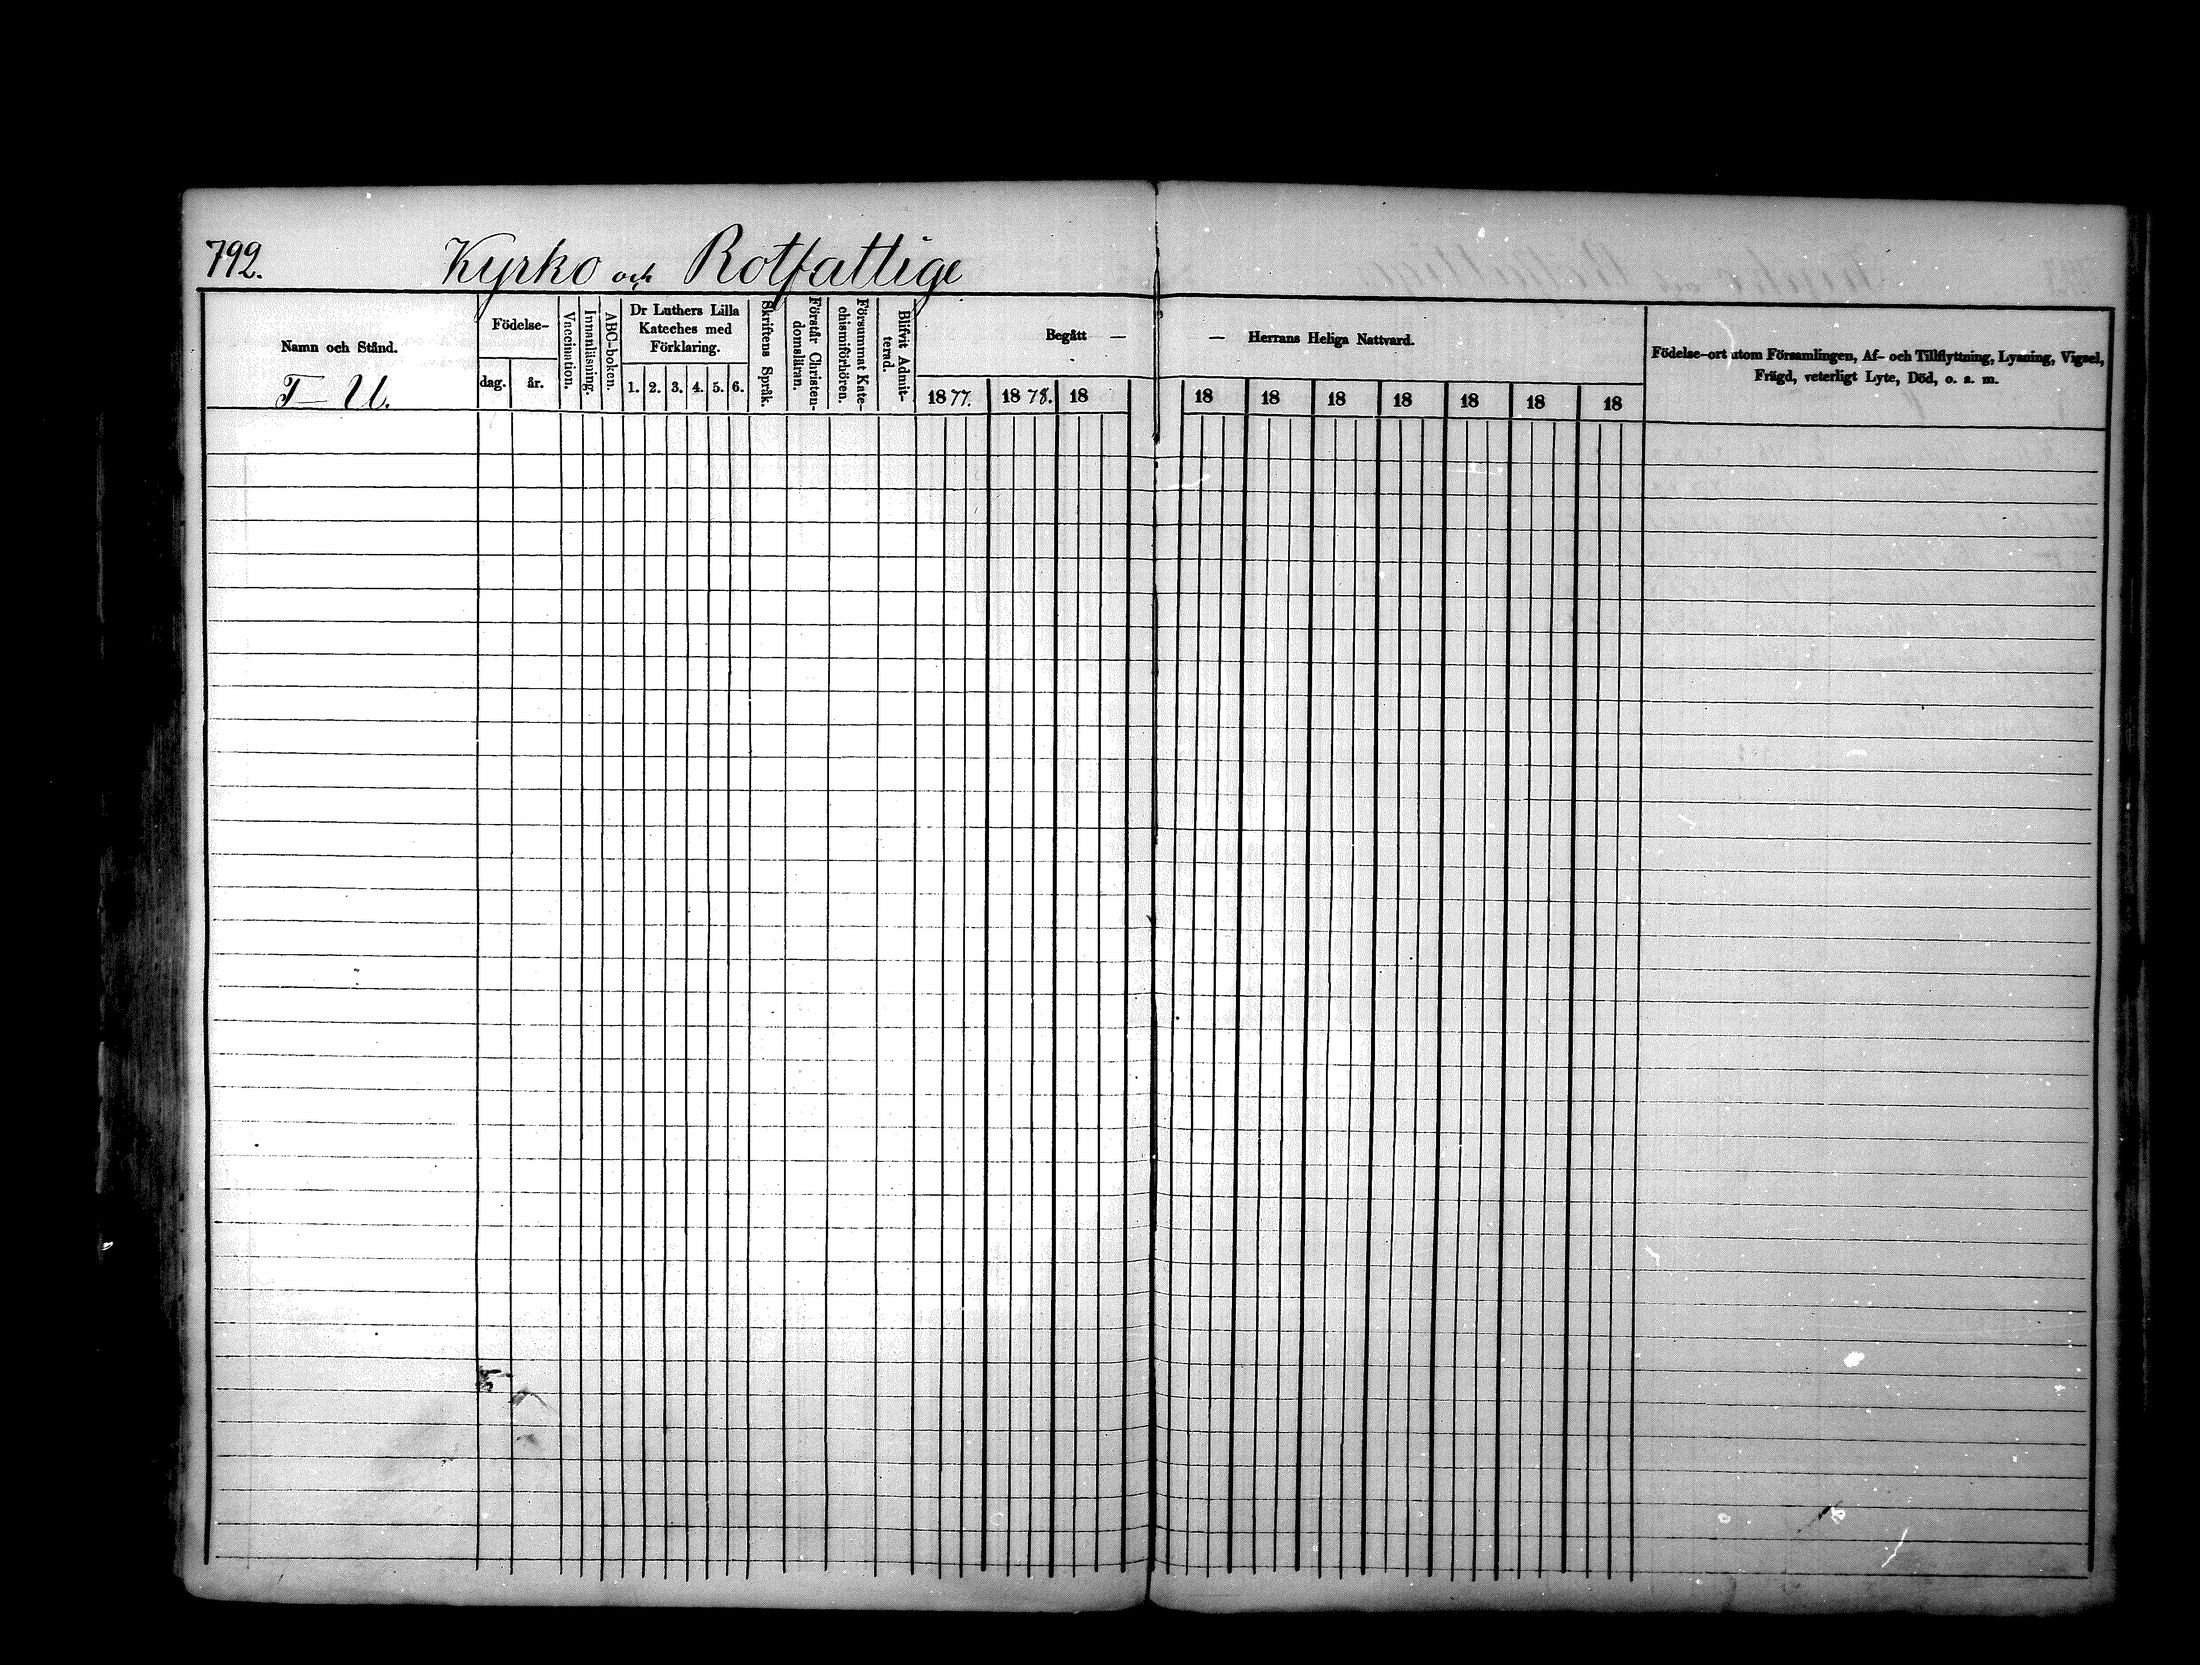 792. Kyrko och Rotfattige
Namn och Stånd.
T–U.
Födelse-
dag. år.
Vaccination.
Innanläsning.
ABC-boken.
Dr Luthers Lilla
Kateches med
Förklaring.
1. 2. 3. 4. 5. 6.
Skriftens Språk.
Förstår Christen-
domsläran.
Försummat Kate-
chismiförhören.
Blifvit Admit-
terad.
Begått —
1877. 1878. 18
— Herrans Heliga Nattvard.
18 18 18 18 18 18 18
Födelse-ort utom Församlingen, Af- och Tillflyttning, Lysning, Vigsel,
Frägd, veterligt Lyte, Död, o. s. m.